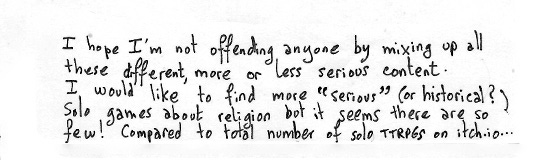 I hope I'm not offending anyone by mixing up all
these different, more or less serious content.
I would like to find more "serious" (or historical?)
Solo games about religion but it seems there are so
few! Compared to total number of solo TTRPGs on itch.io...